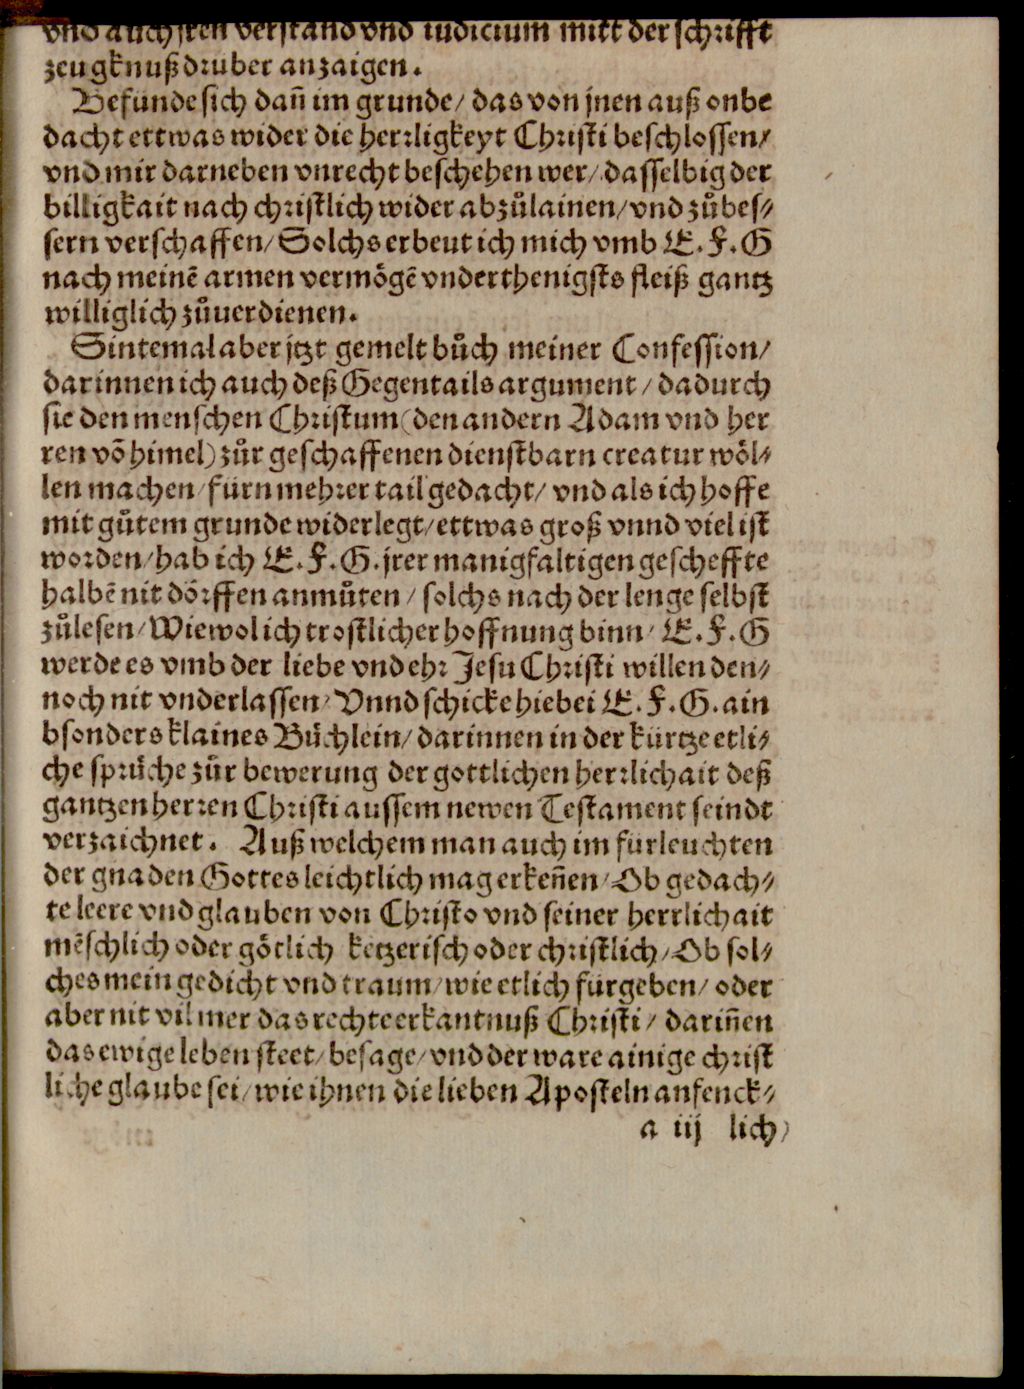 vnd auch jren verstand vnd iudicium mitt der schrifft
zeugknuß druber anzaigen.
Befunde sich dañ im grunde/ das von jnen auß onbe
dacht ettwas wider die herrligkeyt Christi beschlossen/
vnd mir darneben vnrecht beschehen wer/ dasselbig der
billigkait nach christlich wider abzůlainen/ vnd zůbes⸗
sern verschaffen/ Solchs erbeut ich mich vmb E. F. G
nach meinẽ armen vermögẽ vnderthenigsts fleiß gantz
williglich zůuerdienen.
Sintemal aber jtzt gemelt bůch meiner Confession/
darinnen ich auch deß Gegentails argument/ dadurch
sie den menschen Christum (den andern Adam vnd her
ren võ himel) zůr geschaffenen dienstbarn creatur wöl⸗
len machen/ fürnmehrer tail gedacht/ vnd als ich hoffe
mit gůtem grunde widerlegt/ ettwas groß vnnd viel ist
worden/ hab ich E. F. G. jrer manigfaltigen gescheffte
halbẽ nit dörffen anmůten/ solchs nach der lenge selbst
zůlesen/ Wiewol ich trostlicher hoffnung binn/ E. F. G
werde es vmb der liebe vnd ehr Jesu Christi willen den⸗
noch nit vnderlassen/ Vnnd schicke hiebei E. F. G. ain
bsonders klaines Büchlein/ darinnen in der kürtze etli⸗
che sprüche zůr bewerung der gottlichen herrlichait deß
gantzen herren Christi aussem newen Testament seindt
verzaichnet. Auß welchem man auch im fürleuchten
der gnaden Gottes leichtlich mag erkeñen/ Ob gedach⸗
te leere vnd glauben von Christo vnd seiner herrlichait
mẽschlich oder götlich ketzerisch oder christlich/ Ob sol⸗
ches mein gedicht vnd traum/ wie etlich fürgeben/ oder
aber nit vil mer das rechte erkantnuß Christi/ dariñen
das ewige leben steet/ besage/ vnd der ware ainige christ
liche glaube sei/ wie ihnen die lieben Aposteln anfenck⸗
a iij lich/